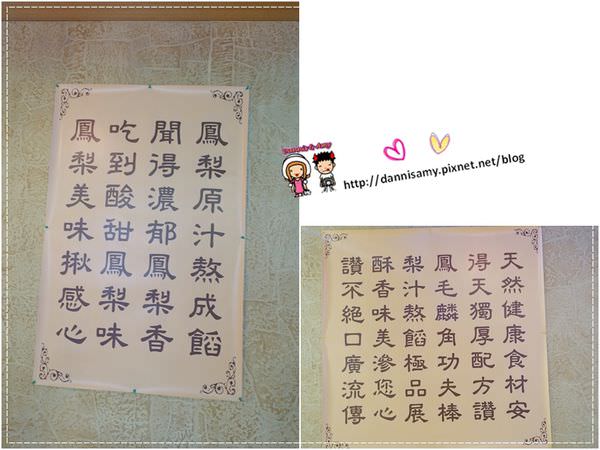 鳳梨原汁熬成餡
聞得濃郁鳳梨香
吃到酸甜鳳梨味
鳳梨美味揪感心
Dannis & Amy
http://dannisamy.pixnet.net/blog
天然健康食材安
得天獨厚配方讚
鳳毛麟角功夫棒
梨汁熬餡極品展
酥香味美滲您心
讚不絕口廣流傳